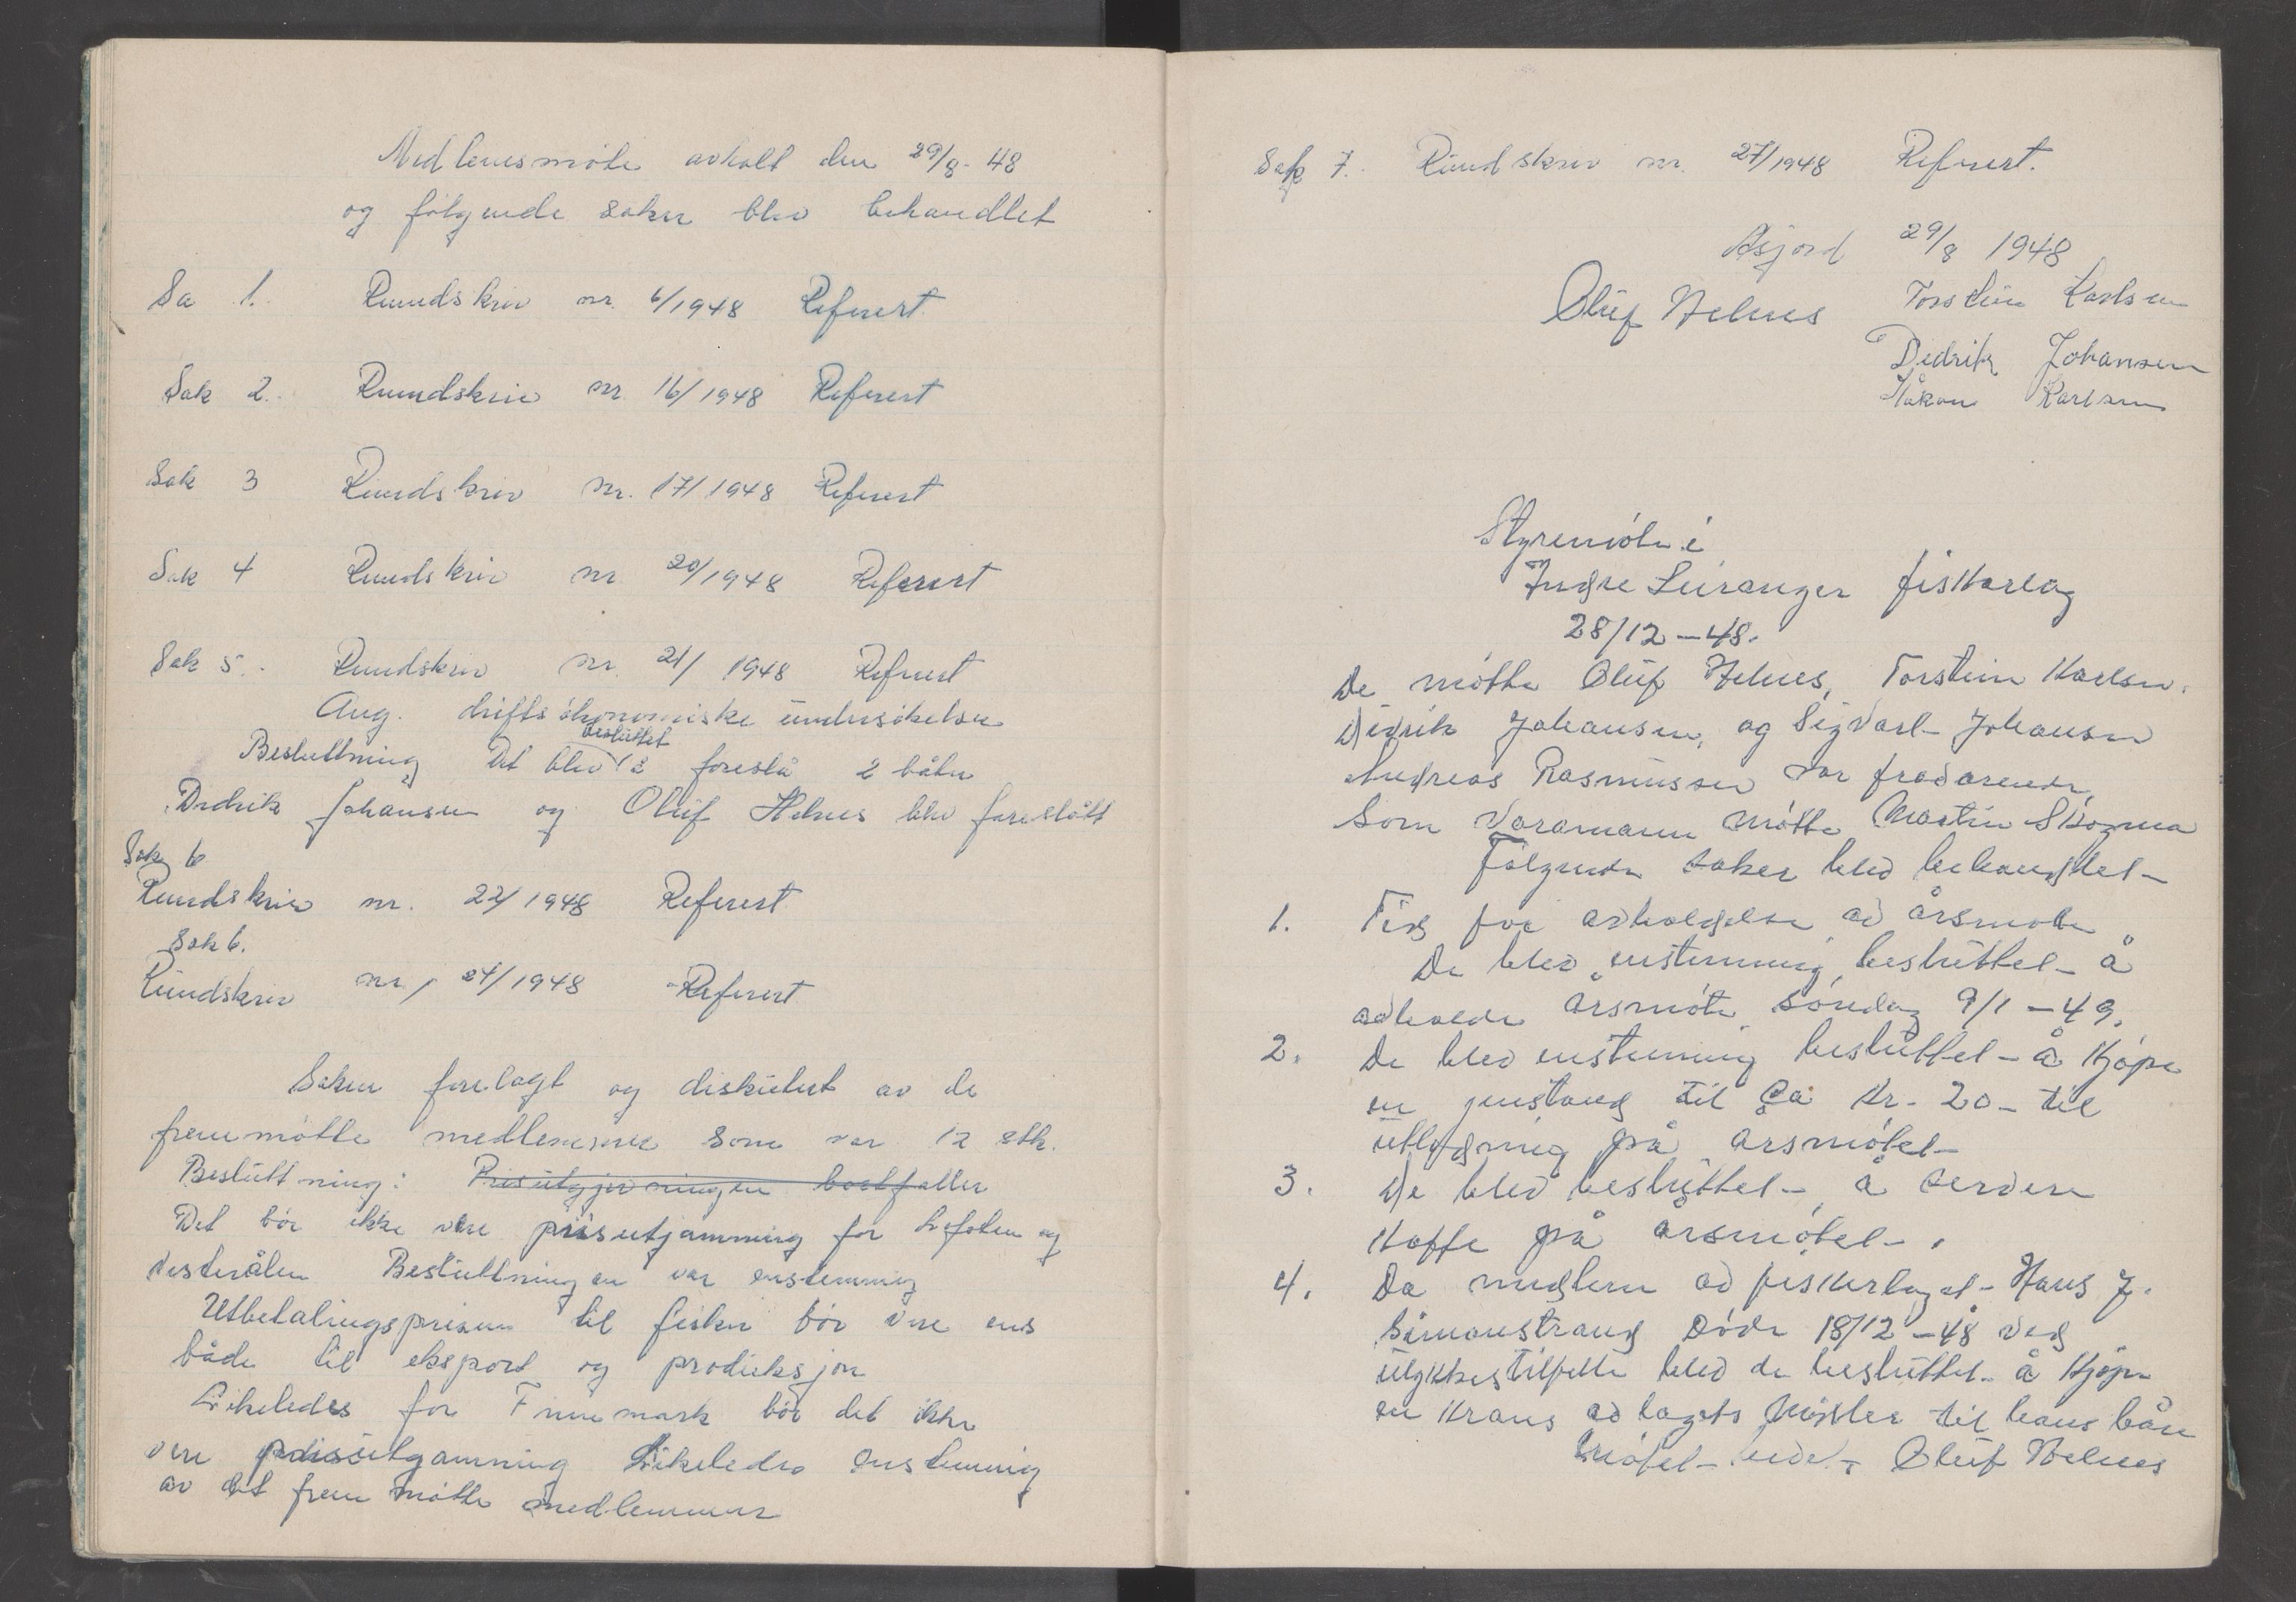 Medlemsmöte avholt den 29/8-48
og fölgende saker blev behandlet
Sa 1. Rundskriv nr. 6/1948 Referert.
Sak 2. Rundskriv nr. 16/1948 Referert
Sak 3 Rundskriv nr. 17/1948 Referert
Sak 4 Rundskriv nr 20/1948 Referert
Sak 5. Rundskriv nr. 21/1948 Referert
Ang. driftsökonomiske undersökelser
besluttet
Besluttning Det blev å foreslå 2 båter
Didrik Johansen og Oluf Helnes blev foreslått
Sak 6
Rundskriv nr. 22/1948 Referert
Sak 6.
Rundskriv nr, 24/1948 Referert
Saken forelagt og diskutert av de
fremmötte medlemmer som var 12 stk.
Besluttning: Prisutgjevningen bortfaller
Det bör ikke vere prisutjamning for Lofoten og
Vesterålen Besluttningen var enstemmig
Utbetalingsprisen til fisker bör vere ens
både til eksport og produksjon
Likeledes for Finnmark bör det ikke
vere prisutgamning Likeledes enstemmig
av det frem mötte medlemmer
Sak 7. Rundskriv nr. 27/1948 Referert.
29/8 1948
Oluf Helnes Torstein Karlsen
Dedrik Johansen
Håkon Karlsen
Styremöte i
Indre Leiranger fiskarlag
28/12-48.
De mötte Oluf Helnes, Torstein Karlsen.
Didrik Johansen, og Sigvart Johansen
Andreas Rasmussen var fraværende,
Som Varamann mötte Martin
Fölgende saker blev behandlet-
1. Tid for avholdelse av årsmöte
De blev enstemmig besluttet- å
avholde årsmöte söndag 9/1-49.
2. De blev enstemmig besluttet- å kjöpe
en genstand til Ca kr- 20- til
utlodning på årsmötet-
3. De blev besluttet- å servere
Kaffe på årsmötet-.
4. Da medlem av fiskerlaget- Hans J.
Simonstrand Döde 18/12-48 ved
ulykkestilfelle blev de besluttet- å kjöpe
en krans av lagets Midler til hans båre
Mötet- hevet- Oluf Helnes